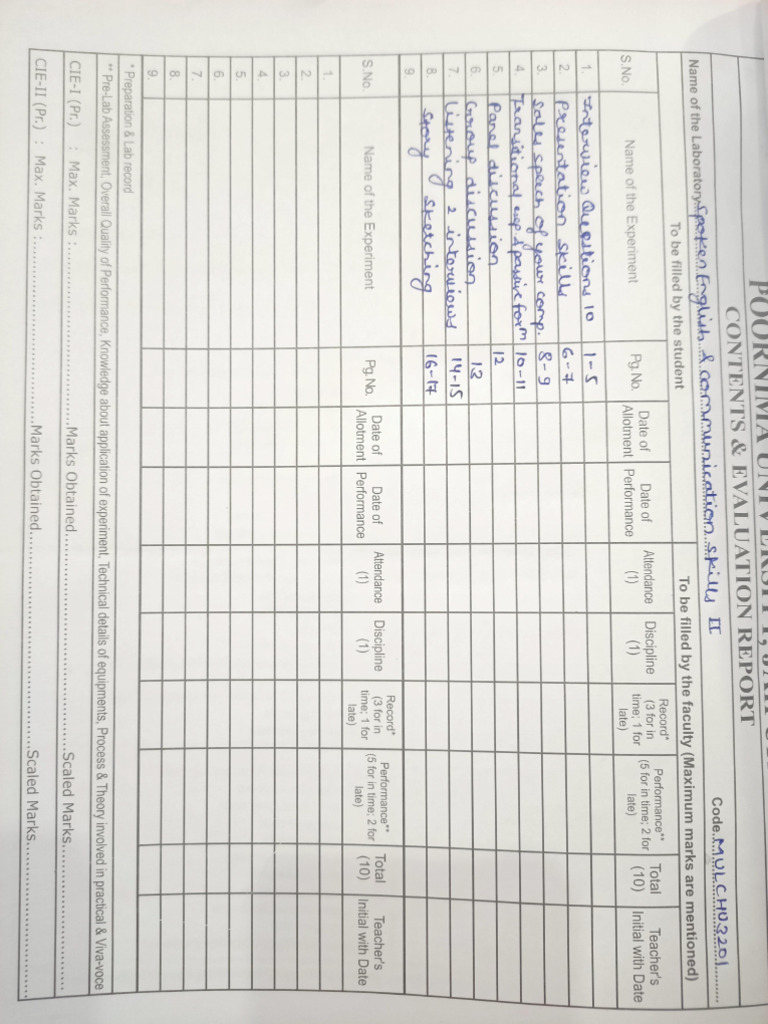 POORNIMA UNIVERSITY, JAIPUR
CONTENTS & EVALUATION REPORT
Name of the Laboratory Spoken English & communication skills II Code MULCHU3201
To be filled by the student To be filled by the faculty (Maximum marks are mentioned)
S.No. Name of the Experiment Pg.No. Date of Allotment Date of Performance Attendance (1) Discipline (1) Record* (3 for in time; 1 for late) Performance** (5 for in time; 2 for late) Total (10) Teacher's Initial with Date
1. Interview Questions 10 1-5
2. Presentation skills 6-7
3. Sales speech of your comp. 8-9
4. Transitional exp & passive form 10-11
5. Panel discussion 12
6. Group discussion 13
7. Listening 2 interviews 14-15
8. Story Sketching 16-17
9.
S.No. Name of the Experiment Pg.No. Date of Allotment Date of Performance Attendance (1) Discipline (1) Record* (3 for in time; 1 for late) Performance** (5 for in time; 2 for late) Total (10) Teacher's Initial with Date
1.
2.
3.
4.
5.
6.
7.
8.
9.
* Preparation & Lab record
** Pre-Lab Assessment, Overall Quality of Performance, Knowledge about application of experiment, Technical details of equipments, Process & Theory involved in practical & Viva-voce
CIE-I (Pr.) : Max. Marks : Marks Obtained Scaled Marks
CIE-II (Pr.) : Max. Marks : Marks Obtained Scaled Marks